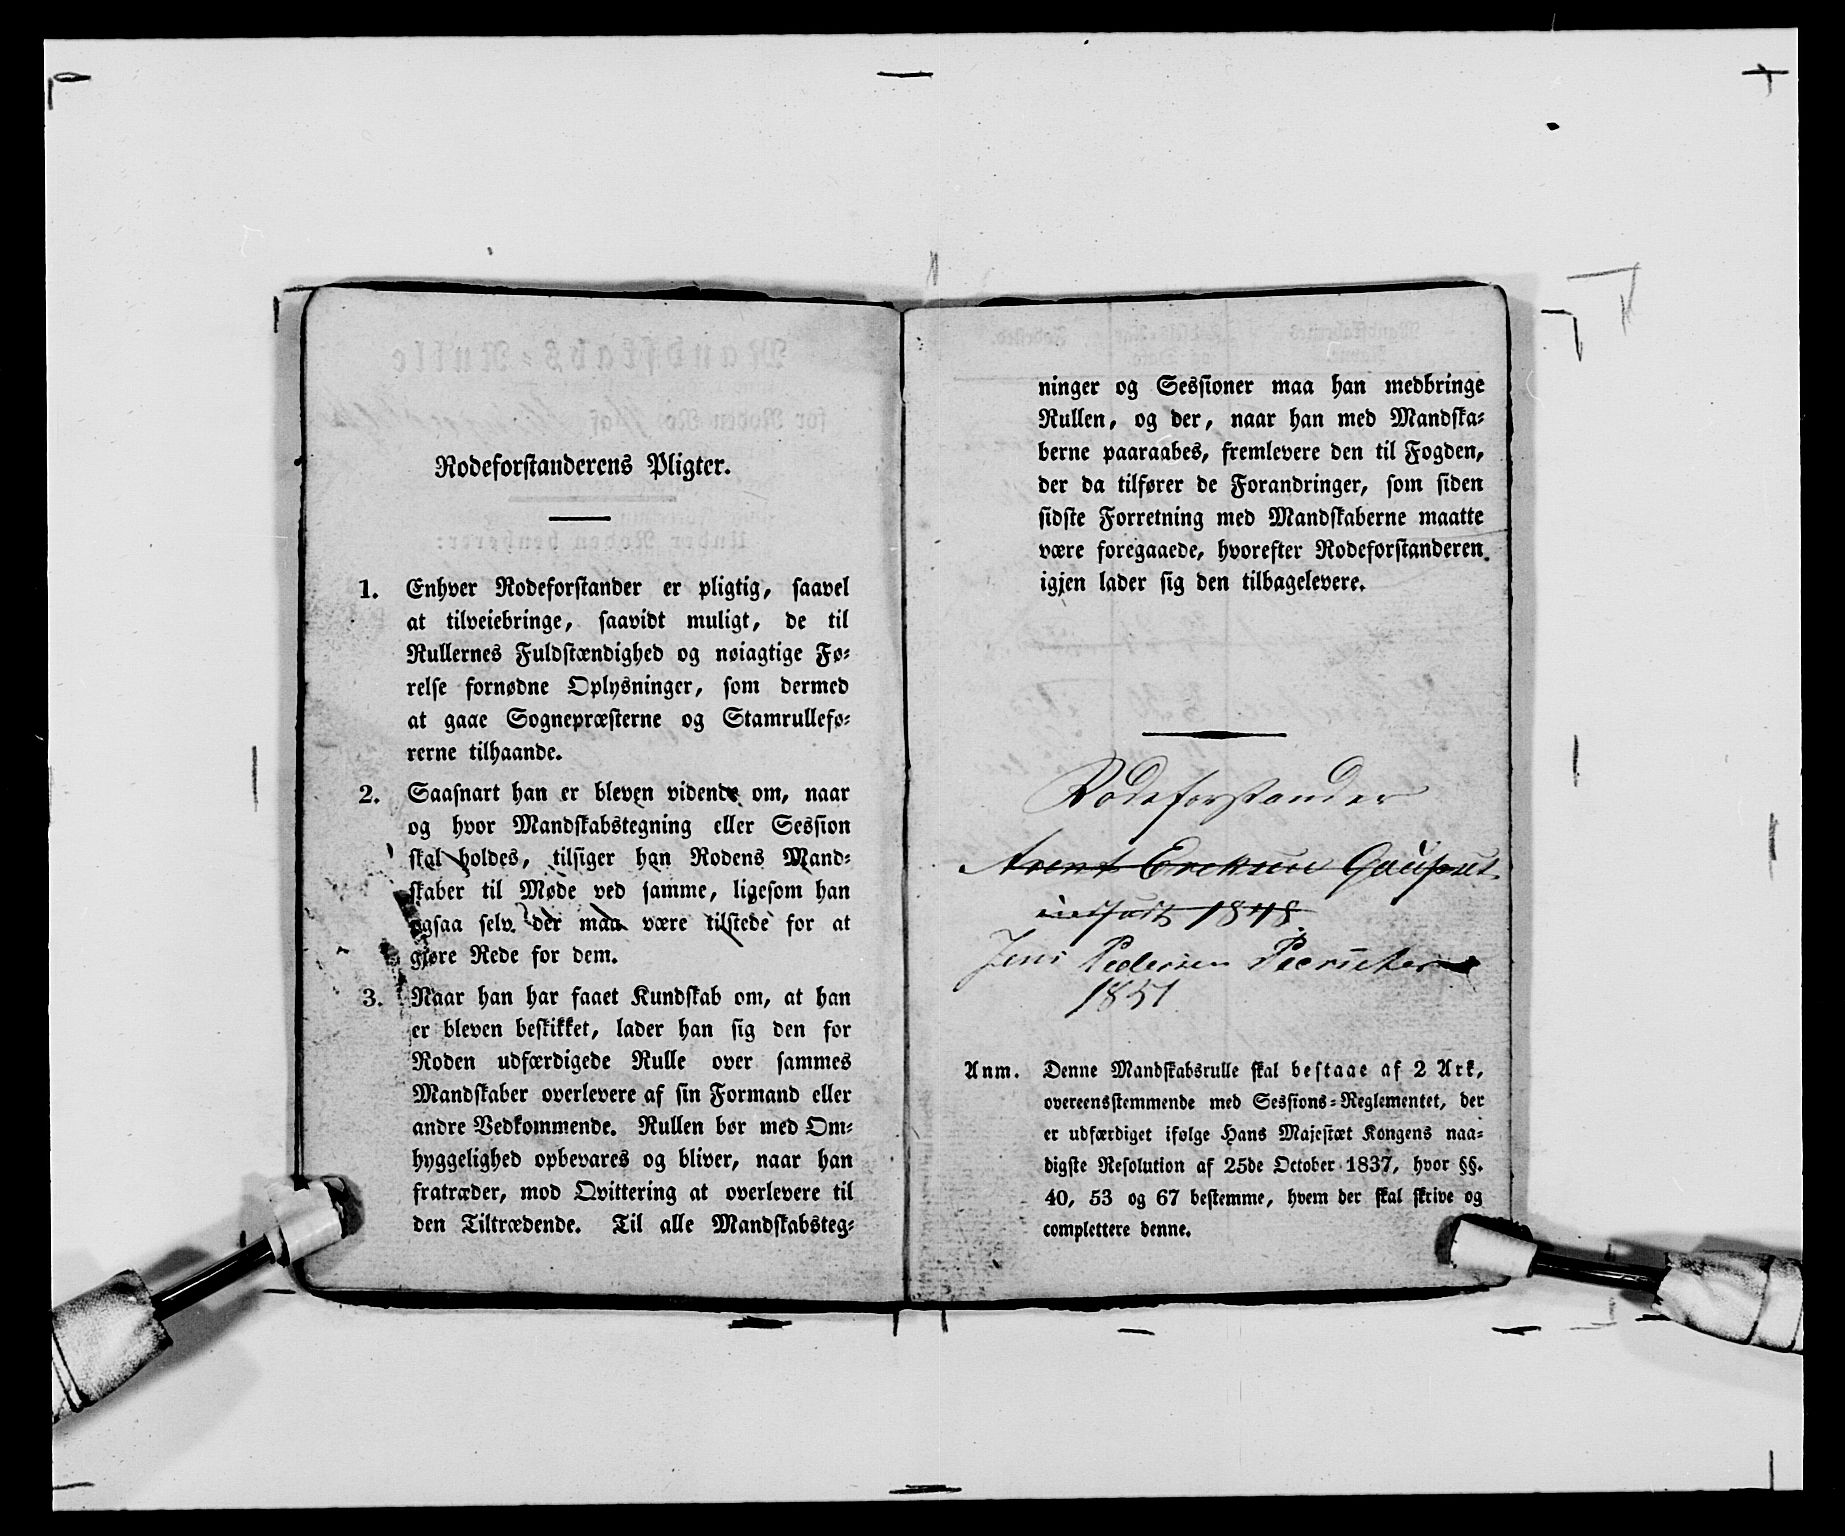 Rodeforstanderens Pligter.
1. Enhver Rodeforstander er pligtig, saavel
at tilveiebringe, saavidt muligt, de til
Rullernes Fuldstændighed og nøiagtige Fø-
relse fornødne Oplysninger, som dermed
at gaae Sognepræsterne og Stamrullefø-
rerne tilhaande.
2. Saasnart han er bleven vidende om, naar
og hvor Mandskabstegning eller Session
skal holdes, tilsiger han Rodens Mand-
skaber til Møde ved samme, ligesom han
ogsaa selv der maa være tilstede for at
gjøre Rede for dem.
3. Naar han har faaet Kundskab om, at han
er bleven beskikket, lader han sig den for
Roden udfærdigede Rulle over sammes
Mandskaber overlevere af sin Formand eller
andre Vedkommende. Rullen bør med Om-
hyggelighed opbevares og bliver, naar han
fratræder, mod Qvittering at overlevere til
den Tiltrædende. Til alle Mandskabsteg-
ninger og Sessioner maa han medbringe
Rullen, og der, naar han med Mandska-
berne paaraabes, fremlevere den til Fogden,
der da tilfører de Forandringer, som siden
sidste Forretning med Mandskaberne maatte
være foregaaede, hvorefter Rodeforstanderen
igjen lader sig den tilbagelevere.
Rodeforstander
Arent
1848
Jens Pedersen
1851
Anm. Denne Mandskabsrulle skal bestaae af 2 Ark,
overeensstemmende med Sessions-Reglementet, der
er udfærdiget ifølge Hans Majestæt Kongens naa-
digste Resolution af 25de October 1837, hvor §§.
40, 53 og 67 bestemme, hvem der skal skrive og
complettere denne.